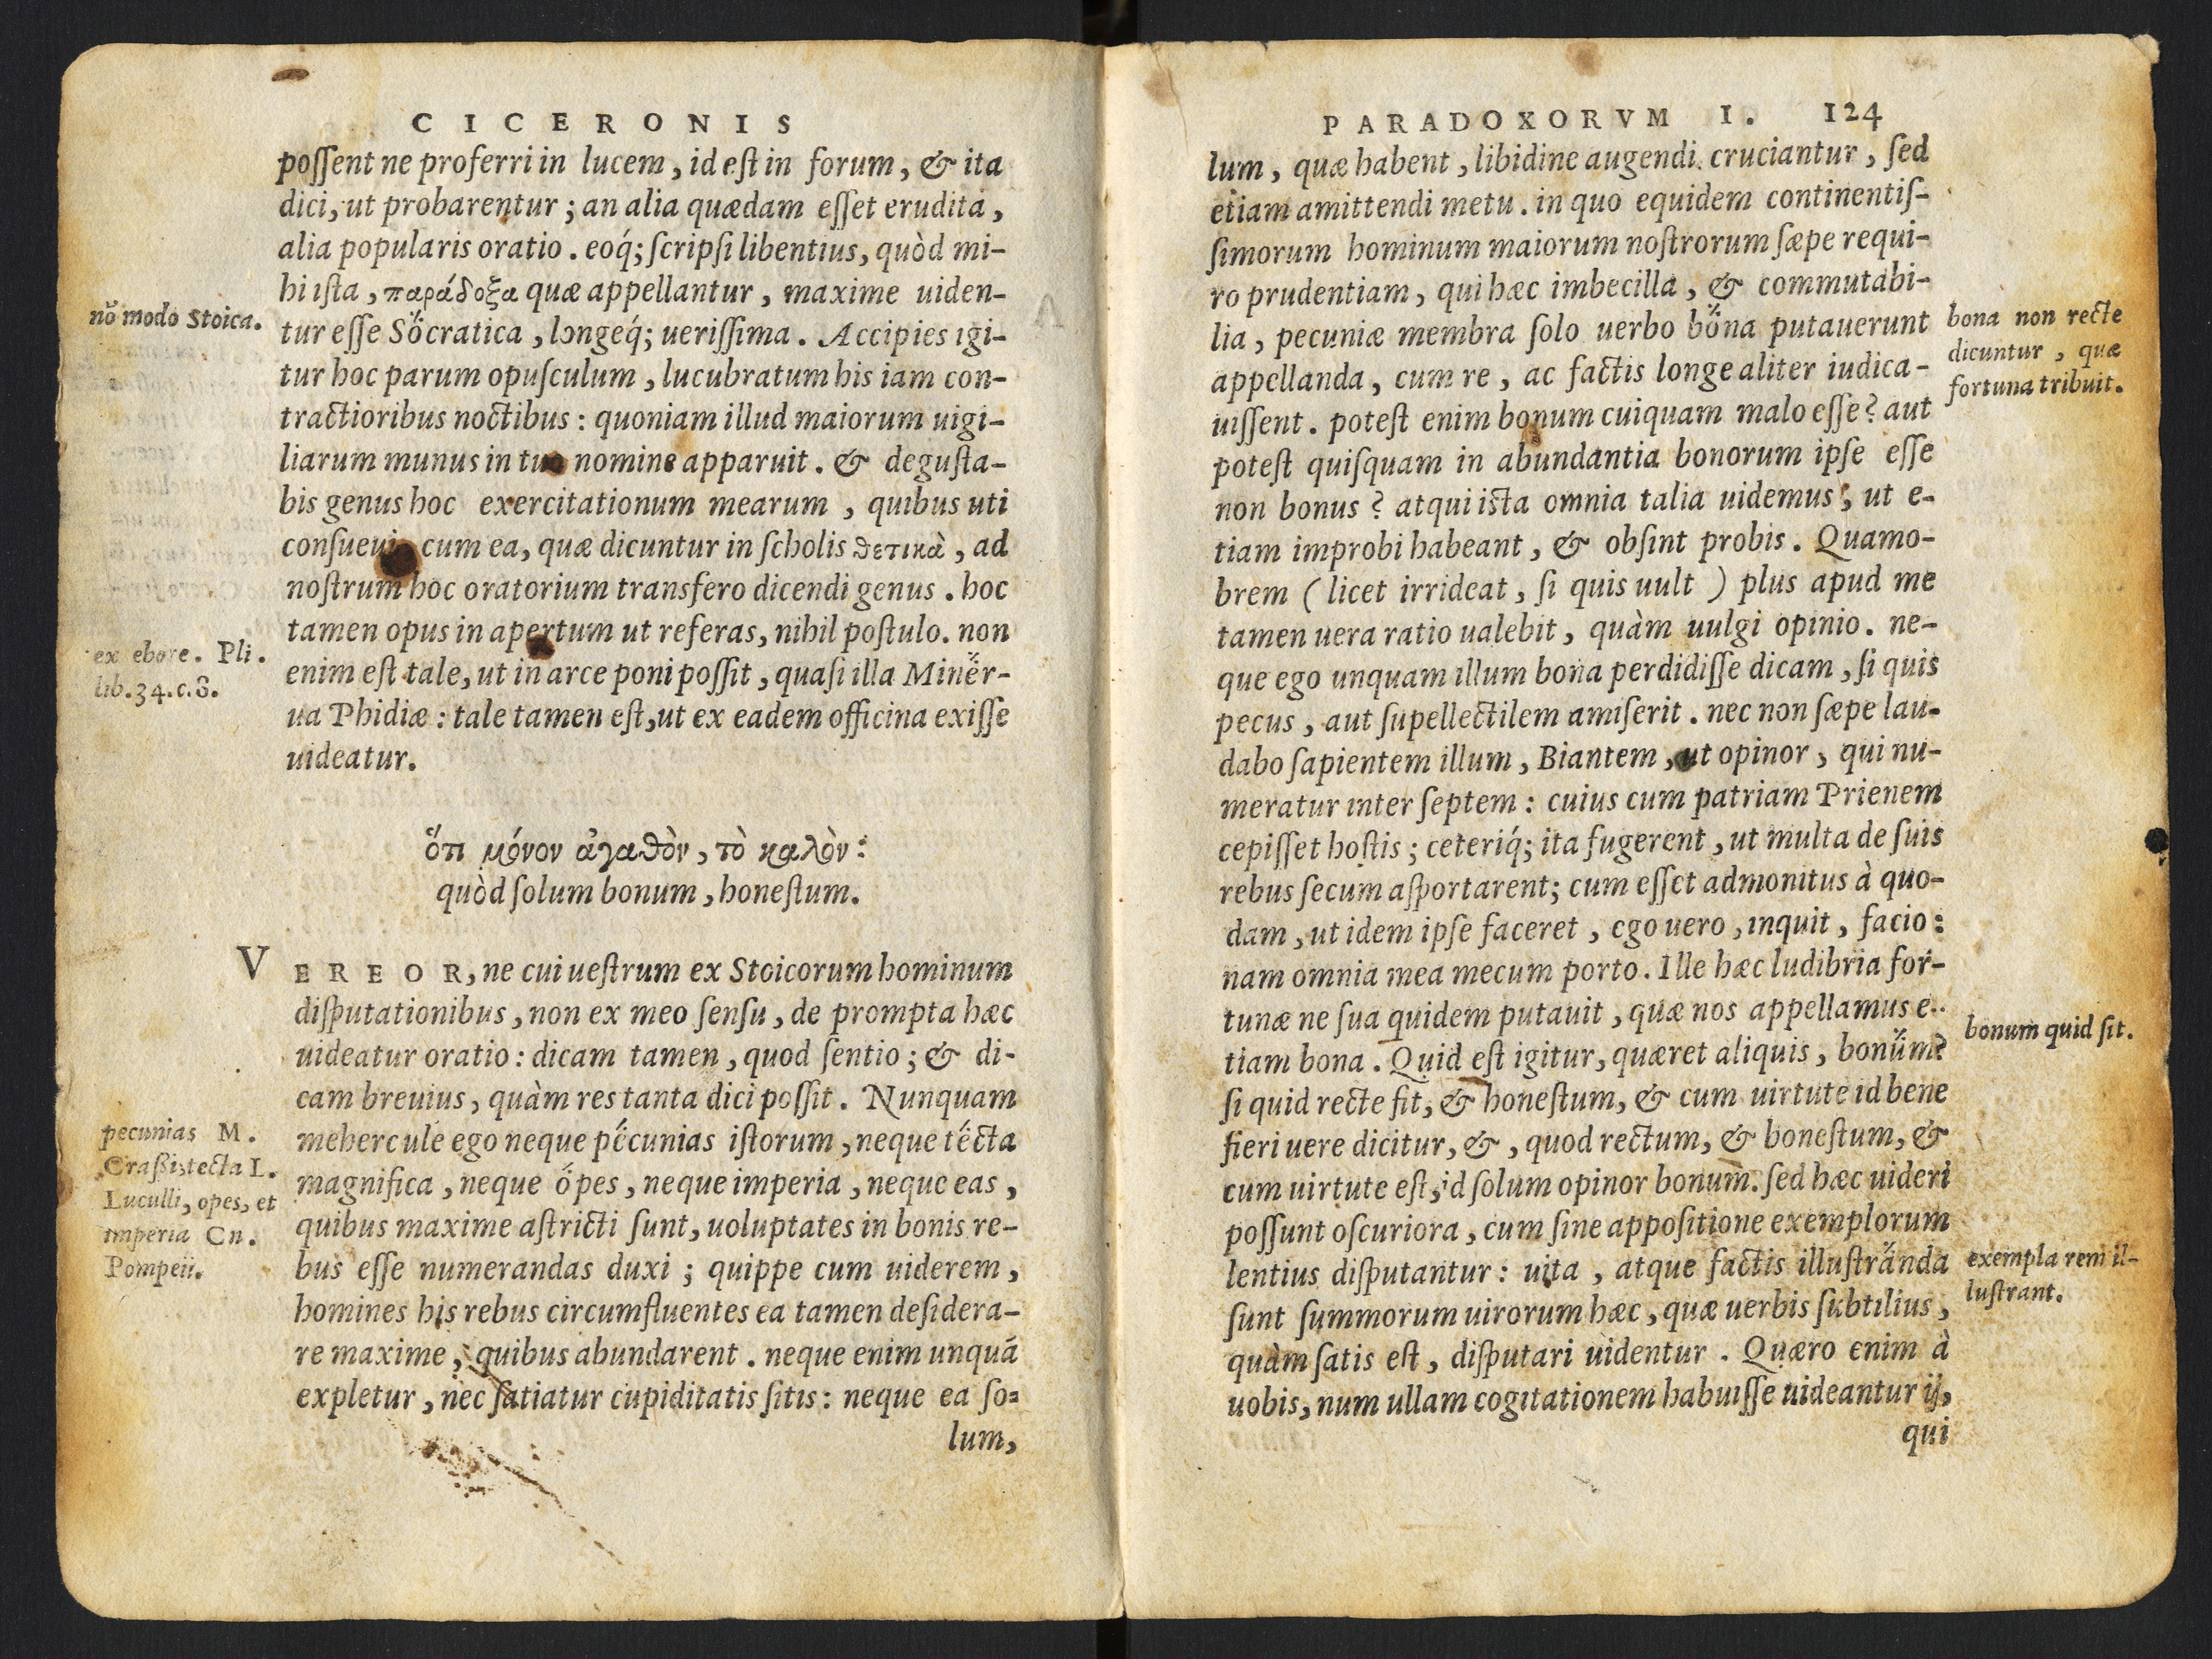 CICERONIS
poſſent ne proferri in lucem, id eſt in forum, & ita
dici, ut probarentur; an alia quædam eſſet erudita,
alia popularis oratio. eoq́; ſcripſi libentius, quòd mi-
hi iſta, παράδοξα quæ appellantur, maxime uiden-
nō modo Stoica.
tur eſſe Socratica, longeq́; ueriſſima. Accipies igi-
tur hoc parum opuſculum, lucubratum his iam con-
tractioribus noctibus: quoniam illud maiorum uigi-
liarum munus in tuo nomine apparuit. & deguſta-
bis genus hoc exercitationum mearum, quibus uti
conſueui, cum ea, quæ dicuntur in ſcholis θετικὰ, ad
noſtrum hoc oratorium transfero dicendi genus. hoc
tamen opus in apertum ut referas, nihil poſtulo. non
ex ebore. Pli.
lib.34.c.8.
enim eſt tale, ut in arce poni poſſit, quaſi illa Miner-
ua Phidiæ: tale tamen eſt, ut ex eadem officina exiſſe
uideatur.
ὅτι μόνον ἀγαθὸν, τὸ καλὸν:
quòd ſolum bonum, honeſtum.
VEREOR, ne cui ueſtrum ex Stoicorum hominum
diſputationibus, non ex meo ſenſu, de prompta hæc
uideatur oratio: dicam tamen, quod ſentio; & di-
cam breuius, quàm res tanta dici poſſit. Nunquam
pecunias M.
Craſſi, tecta L.
Luculli, opes, et
imperia Cn.
Pompeii.
mehercule ego neque pecunias iſtorum, neque tecta
magnifica, neque opes, neque imperia, neque eas,
quibus maxime aſtricti ſunt, uoluptates in bonis re-
bus eſſe numerandas duxi; quippe cum uiderem,
homines his rebus circumfluentes ea tamen deſidera-
re maxime, quibus abundarent. neque enim unquā
expletur, nec ſatiatur cupiditatis ſitis: neque ea ſo-
lum,
PARADOXORVM I. 124
lum, quæ habent, libidine augendi cruciantur, ſed
etiam amittendi metu. in quo equidem continentiſ-
ſimorum hominum maiorum noſtrorum ſæpe requi-
ro prudentiam, qui hæc imbecilla, & commutabi-
lia, pecuniæ membra ſolo uerbo bona putauerunt
bona non recte
dicuntur, quæ
fortuna tribuit.
appellanda, cum re, ac factis longe aliter iudica-
uiſſent. poteſt enim bonum cuiquam malo eſſe? aut
poteſt quiſquam in abundantia bonorum ipſe eſſe
non bonus? atqui iſta omnia talia uidemus, ut e-
tiam improbi habeant, & obſint probis. Quamo-
brem (licet irrideat, ſi quis uult) plus apud me
tamen uera ratio ualebit, quàm uulgi opinio. ne-
que ego unquam illum bona perdidiſſe dicam, ſi quis
pecus, aut ſupellectilem amiſerit. nec non ſæpe lau-
dabo ſapientem illum, Biantem, ut opinor, qui nu-
meratur inter ſeptem: cuius cum patriam Prienem
cepiſſet hoſtis; ceteriq́; ita fugerent, ut multa de ſuis
rebus ſecum aſportarent; cum eſſet admonitus à quo-
dam, ut idem ipſe faceret, ego uero, inquit, facio:
nam omnia mea mecum porto. Ille hæc ludibria for-
tunæ ne ſua quidem putauit, quæ nos appellamus e-
tiam bona. Quid eſt igitur, quæret aliquis, bonum?
bonum quid ſit.
ſi quid recte fit, & honeſtum, & cum uirtute id bene
fieri uere dicitur, &, quod rectum, & honeſtum, &
cum uirtute eſt, id ſolum opinor bonum. ſed hæc uideri
poſſunt oſcuriora, cum ſine appoſitione exemplorum
lentius diſputantur: uita, atque factis illuſtranda
exempla rem il-
luſtrant.
ſunt ſummorum uirorum hæc, quæ uerbis ſubtilius,
quàm ſatis eſt, diſputari uidentur. Quæro enim à
uobis, num ullam cogitationem habuiſſe uideantur ij,
qui